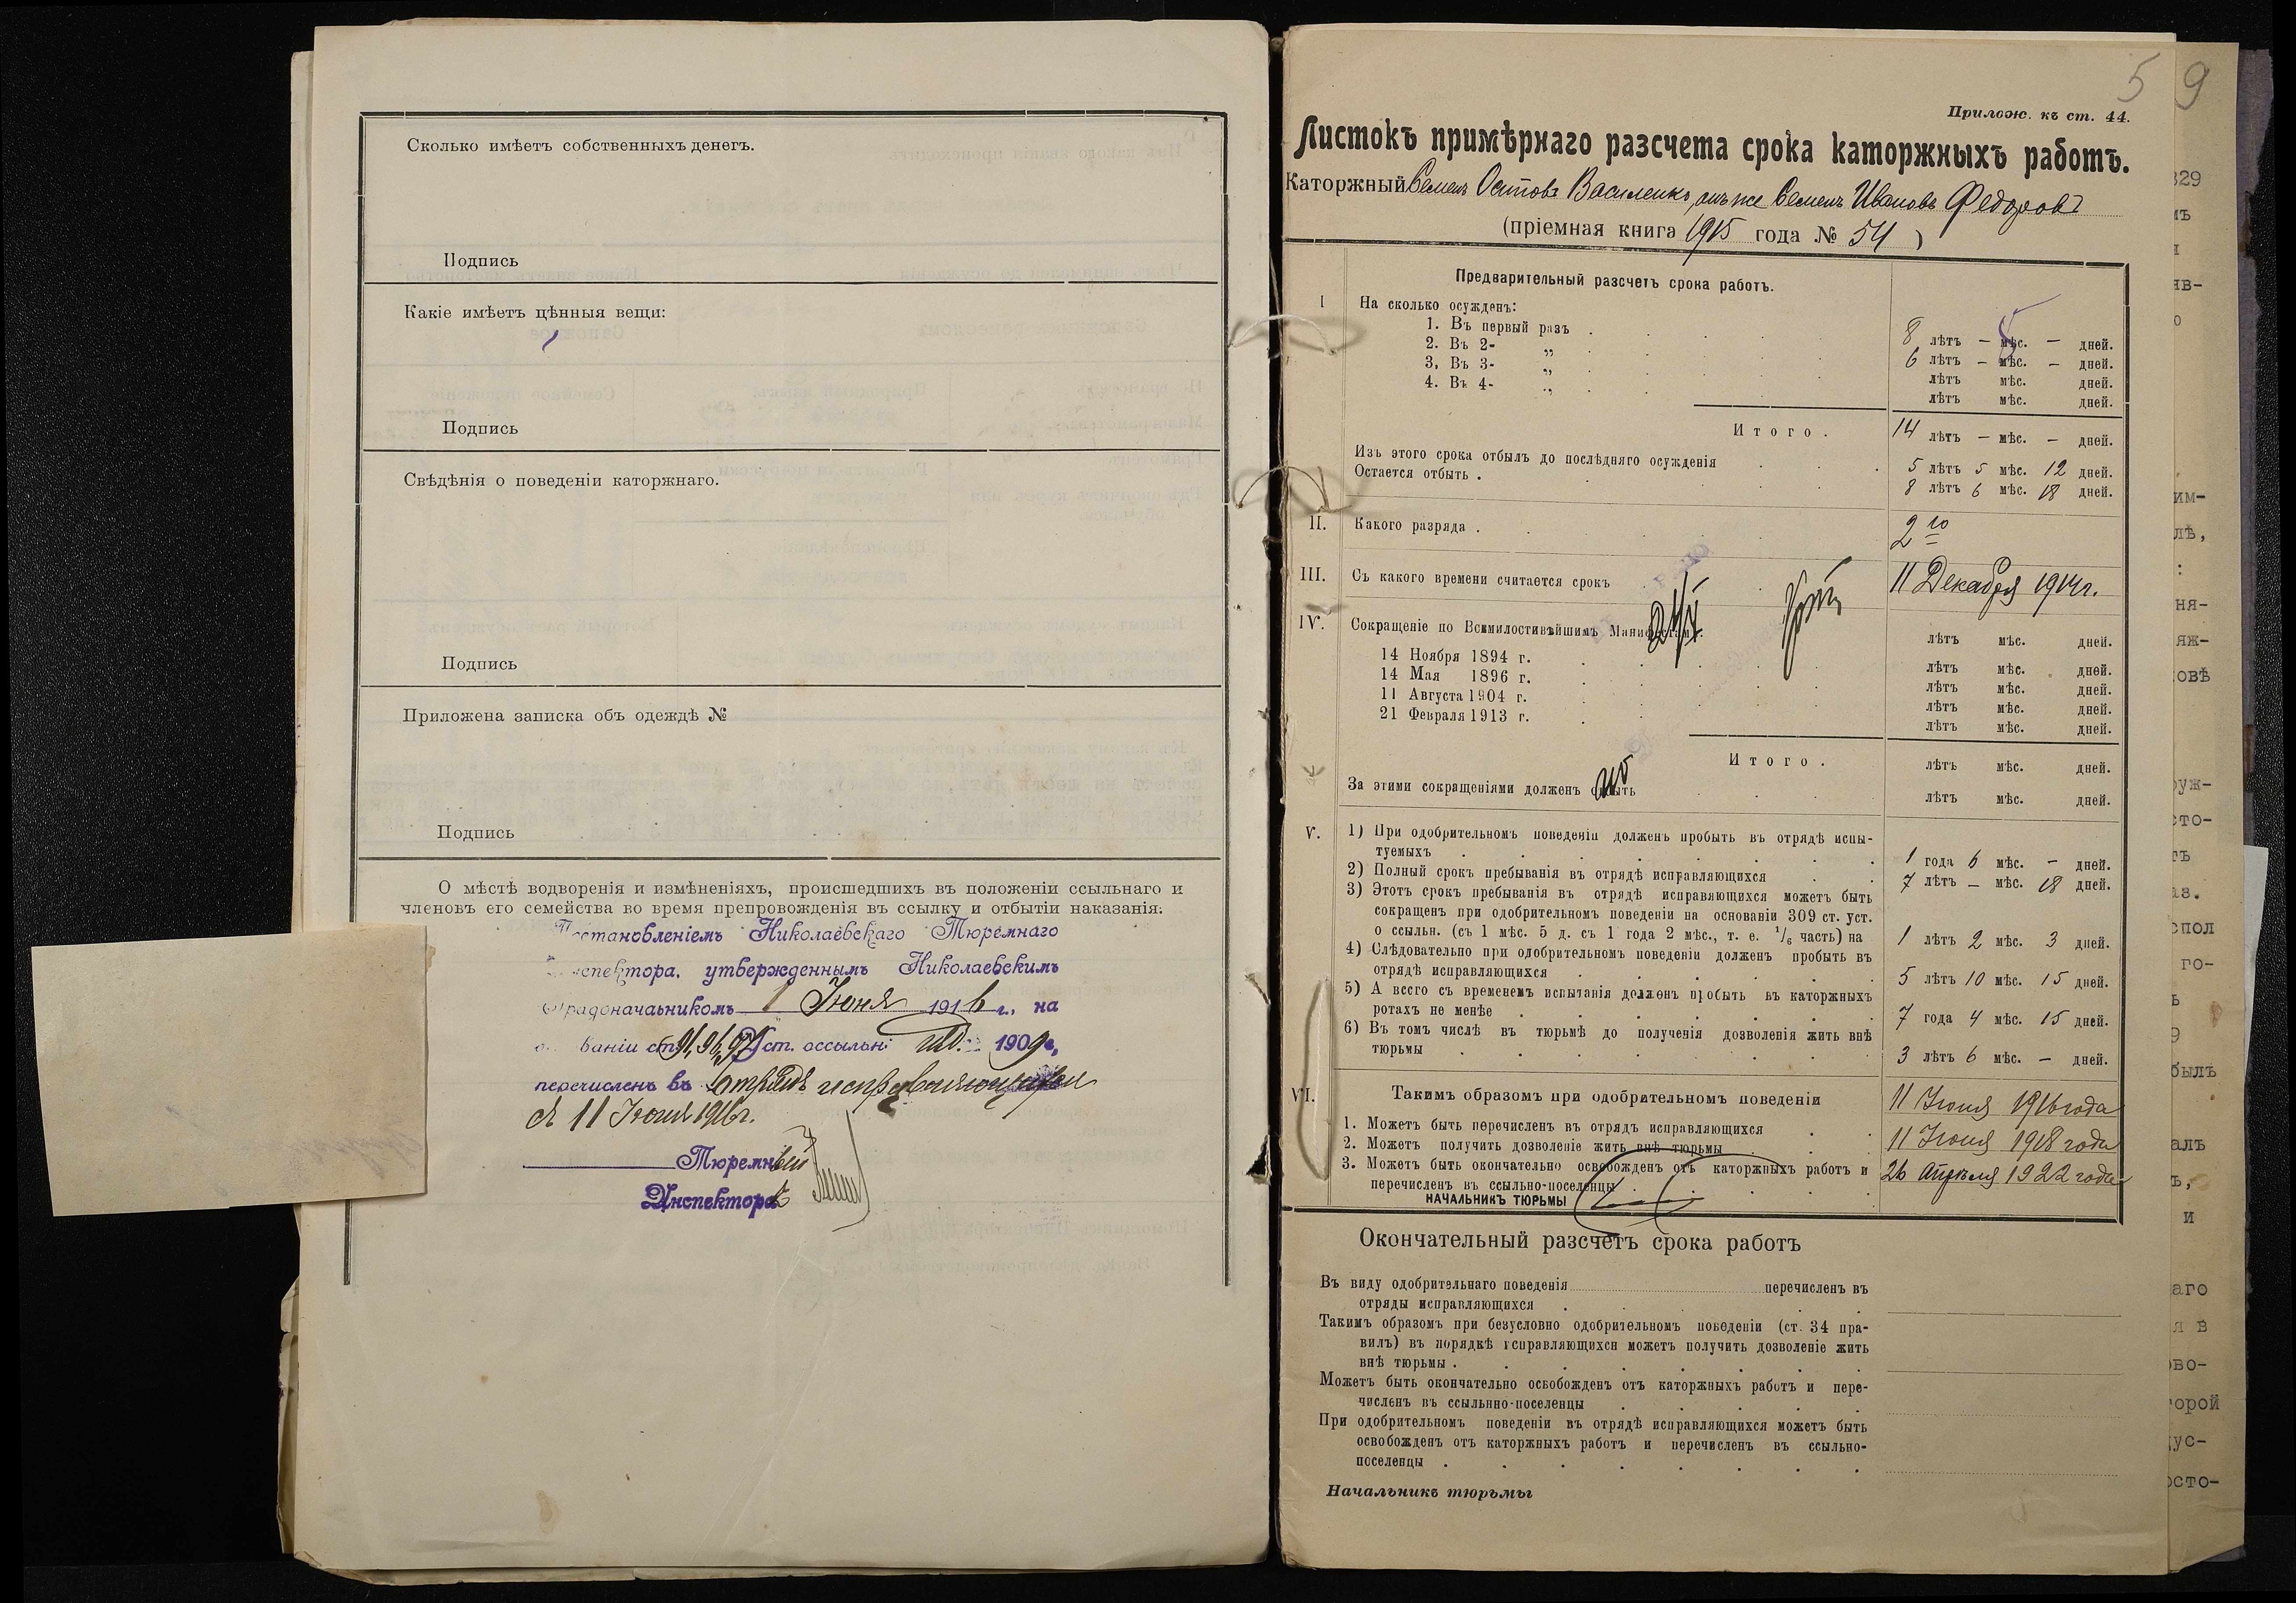 Сколько имѣетъ собственныхъ денегъ.
Подпись
Какіе имѣетъ цѣнныя вещи:
Подпись
Свѣдѣнія о поведеніи каторжнаго.
Подпись
Приложена записка объ одеждѣ №
Подпись
О мѣстѣ водворенія и измѣненіяхъ, происшедшихъ въ положеніи ссыльнаго и
членовъ его семейства во время препровожденія въ ссылку и отбытіи наказанія:
Постановленіемъ Николаевскаго Тюремнаго
Инспектора, утвержденнымъ Николаевскимъ
Градоначаьникомъ 1 Іюня 1916 г., на
ваніи ст. 91, 96, 97 Уст. оссыльн. изд. 1909 г.,
перечисленъ въ отрядъ исправляющихся
съ 11 Іюня 1916 г.
Тюремный
Инспекторъ
5 9
Прилож. къ ст. 44.
Листокъ примѣрнаго разсчета срока каторжныхъ работъ.
Каторжный Семенъ Осиповъ Василенко, онъ же Семенъ Ивановъ Федоровъ
(пріемная книга 1915 года № 54)
Предварительный разсчетъ срока работъ.
I На сколько осужденъ:
1. Въ первый разъ 8 лѣтъ — мѣс. — дней.
2. Въ 2- „ 6 лѣтъ — мѣс. — дней.
3. Въ 3- „ лѣтъ мѣс. дней.
4. Въ 4- „ лѣтъ мѣс. дней.
Итого. 14 лѣтъ — мѣс. — дней.
Изъ этого срока отбылъ до послѣдняго осужденія 5 лѣтъ 5 мѣс. 12 дней.
Остается отбыть . 8 лѣтъ 6 мѣс. 18 дней.
II. Какого разряда . 2го
III. Съ какого времени считается срокъ 11 Декабря 1914 г.
IV. Сокращеніе по Всемилостивѣйшимъ Манифестамъ: лѣтъ мѣс. дней.
14 Ноября 1894 г. лѣтъ мѣс. дней.
14 Мая 1896 г. лѣтъ мѣс. дней.
11 Августа 1904 г. лѣтъ мѣс. дней.
21 Февраля 1913 г. лѣтъ мѣс. дней.
Итого. лѣтъ мѣс. дней.
За этими сокращеніями долженъ отбыть лѣтъ мѣс. дней.
V. 1) При одобрительномъ поведеніи долженъ пробыть въ отрядѣ испы-
туемыхъ 1 года 6 мѣс. — дней.
2) Полный срокъ пребыванія въ отрядѣ исправляющихся 7 лѣтъ — мѣс. 18 дней.
3) Этотъ срокъ пребыванія въ отрядѣ исправляющихся можетъ быть
сокращенъ при одобрительномъ поведеніи на основаніи 309 ст. уст.
о ссыльн. (съ 1 мѣс. 5 д. съ 1 года 2 мѣс., т. е. 1/6 часть) на 1 лѣтъ 2 мѣс. 3 дней.
4) Слѣдовательно при одобрительномъ поведеніи долженъ пробыть въ
отрядѣ исправляющихся 5 лѣтъ 10 мѣс. 15 дней.
5) А всего съ временемъ испытанія долженъ пробыть въ каторжныхъ
ротахъ не менѣе 7 года 4 мѣс. 15 дней.
6) Въ томъ числѣ въ тюрьмѣ до полученія дозволенія жить внѣ
тюрьмы 3 лѣтъ 6 мѣс. — дней.
VI. Такимъ образомъ при одобрительномъ поведеніи
1. Можетъ быть перечисленъ въ отрядъ исправляющихся 11 Іюня 1916 года
2. Можетъ получить дозволеніе жить внѣ тюрьмы 11 Іюня 1918 года
3. Можетъ быть окончательно освобожденъ отъ каторжныхъ работъ и
перечисленъ въ ссыльно-поселенцы 26 Апрѣля 1922 года
НАЧАЛЬНИКЪ ТЮРЬМЫ
Окончательный разсчетъ срока работъ
Въ виду одобрительнаго поведенія перечисленъ въ
отряды исправляющихся
Такимъ образомъ при безусловно одобрительномъ поведеніи (ст. 34 пра-
вилъ) въ порядкѣ исправляющихся можетъ получить дозволеніе жить
внѣ тюрьмы .
Можетъ быть окончательно освобожденъ отъ каторжныхъ работъ и пере-
численъ въ ссыльно-поселенцы
При одобрительномъ поведеніи въ отрядѣ исправляющихся можетъ быть
освобожденъ отъ каторжныхъ работъ и перечисленъ въ ссыльно-
поселенцы .
Начальникъ тюрьмы